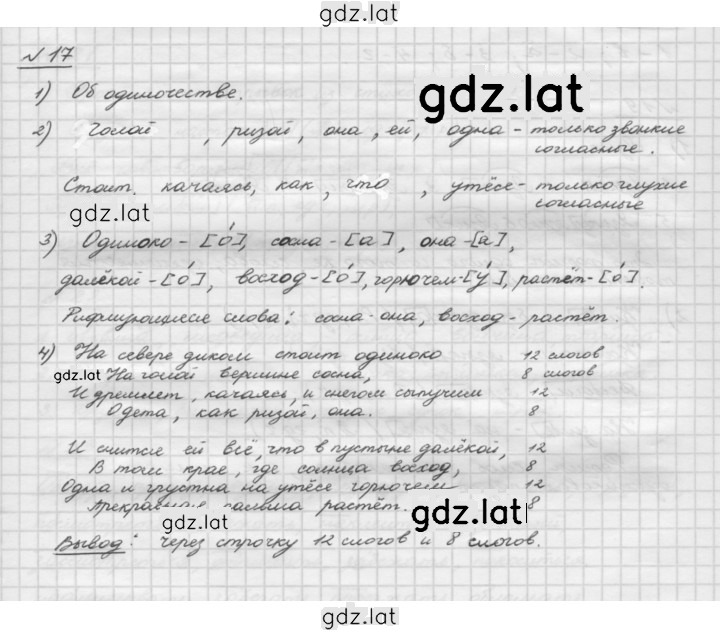 gdz.lat
№ 17
1) Об одиночестве.
gdz.lat
2) Голой , ризой, она, ей, одна - только звонкие
согласные.
Стоит, качаясь, как, что , утёсе - только глухие
согласные
gdz.lat
3) Одиноко - [о́], сосна - [а], она - [а],
далёкой - [о́], восход - [о́], горючем - [у́], растёт - [о́].
Рифмующиеся слова: сосна - она, восход - растёт.
4) На севере диком стоит одиноко 12 слогов
gdz.lat На голой вершине сосна, 8 слогов
И дремлет, качаясь, и снегом сыпучим 12
Одета, как ризой, она. 8
И снится ей всё, что в пустыне далёкой, 12
В том крае, где солнца восход, 8
Одна и грустна на утёсе горючем 12
Прекрасная пальма растёт. 8
gdz.lat
gdz.lat
Вывод: через строчку 12 слогов и 8 слогов.
gdz.lat